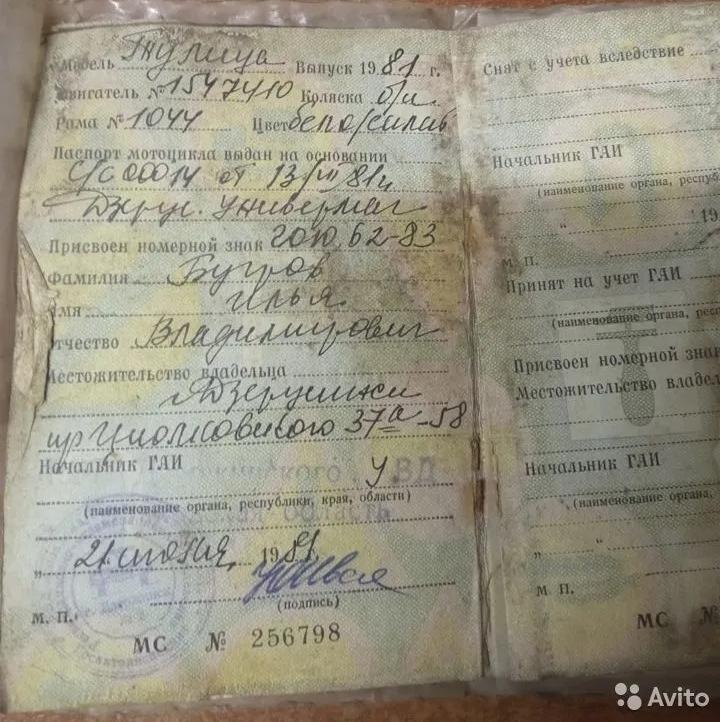 Модель Тулица Выпуск 1981 г.
Двигатель № 1547410 Коляска б/к
Рама № 1044 Цвет бело/синий
Паспорт мотоцикла выдан на основании
С/С 00014 от 13/III 81г
Дзерж. Универмаг
Присвоен номерной знак 62-83
Фамилия Бугров
Имя Илья
Отчество Владимирович
Местожительство владельца
Дзержинск
пр Циолковского 37а-58
Начальник ГАИ
Дзержинского УВД
(наименование органа, республики, края, области)
область
„21 июня 1981
(подпись)
М. П.
МС № 256798
Снят с учета вследствие
Начальник ГАИ
(наименование органа, республ
„ " 19
м. п.
Принят на учет ГАИ
(наименование органа, респу
Присвоен номерной знак
Местожительство владел
Начальник ГАИ
(наименование органа,
„ "
М. П.
МС №
Avito